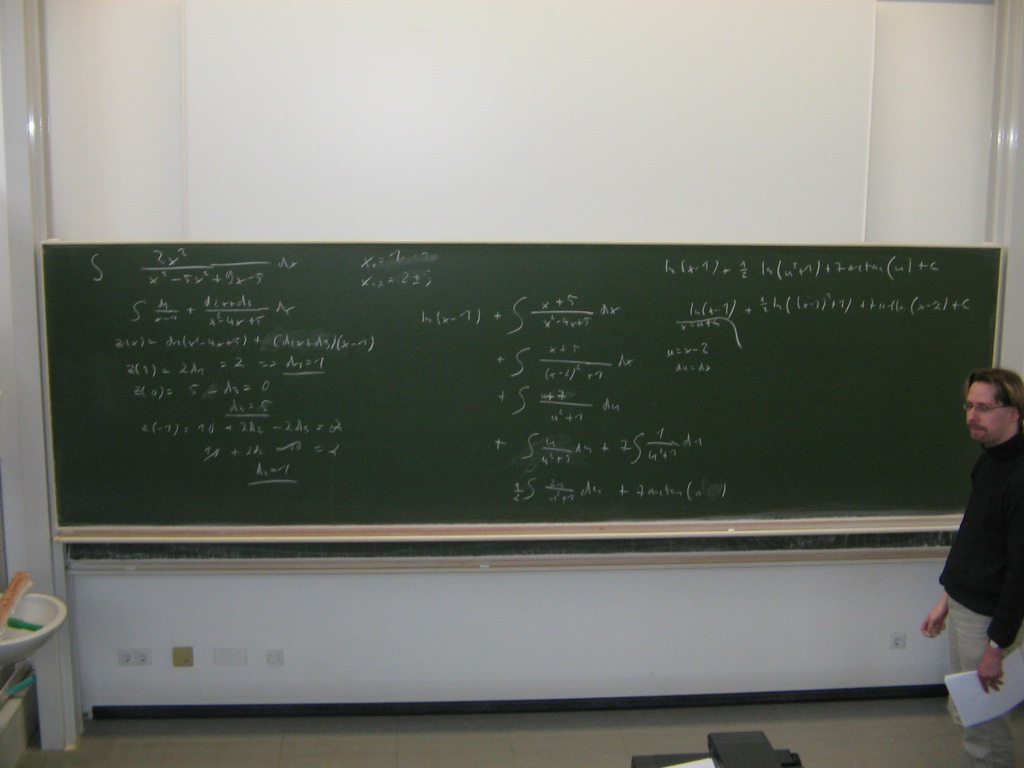 ∫ 2x² / (x³ - 5x² + 9x - 5) dx
x₁,₂ = 2 ± i
∫ d₁/(x-1) + (d₂x+d₃)/(x²-4x+5) dx
z(x) = d₁(x²-4x+5) + (d₂x+d₃)(x-1)
z(1) = 2d₁ = 2 => d₁=1
z(0) = 5 - d₃ = 0
d₃ = 5
z(-1) = 10 + 2d₂ - 2d₃ = 2
10 + 2d₂ - 10 = 2
d₂ = 1
ln(x-1) + ∫ (x+5)/(x²-4x+5) dx
+ ∫ (x+5)/((x-2)²+1) dx
+ ∫ (u+7)/(u²+1) du
+ ∫ u/(u²+1) du + 7 ∫ 1/(u²+1) du
½ ∫ 2u/(u²+1) du + 7 arctan(u)
ln(x-1) + ½ ln(u²+1) + 7 arctan(u) + C
ln(x-1) + ½ ln((x-2)²+1) + 7 arctan(x-2) + C
u = x-2
du = dx